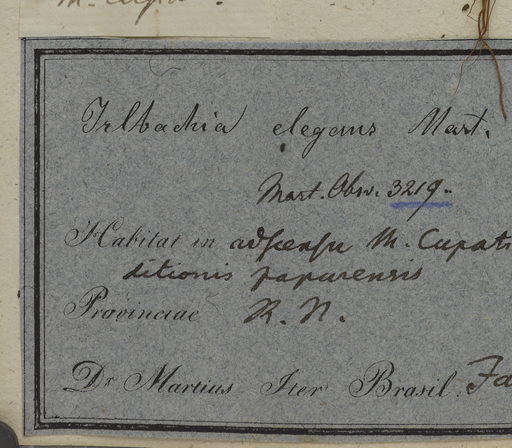 M. Cupa
Irlbachia elegans Mart.
Mart. Obs. 3219.
Habitat in adscensu M. Cupati
ditionis japurensis
Provinciae R. N.
Dr Martius Iter Brasil. Fa